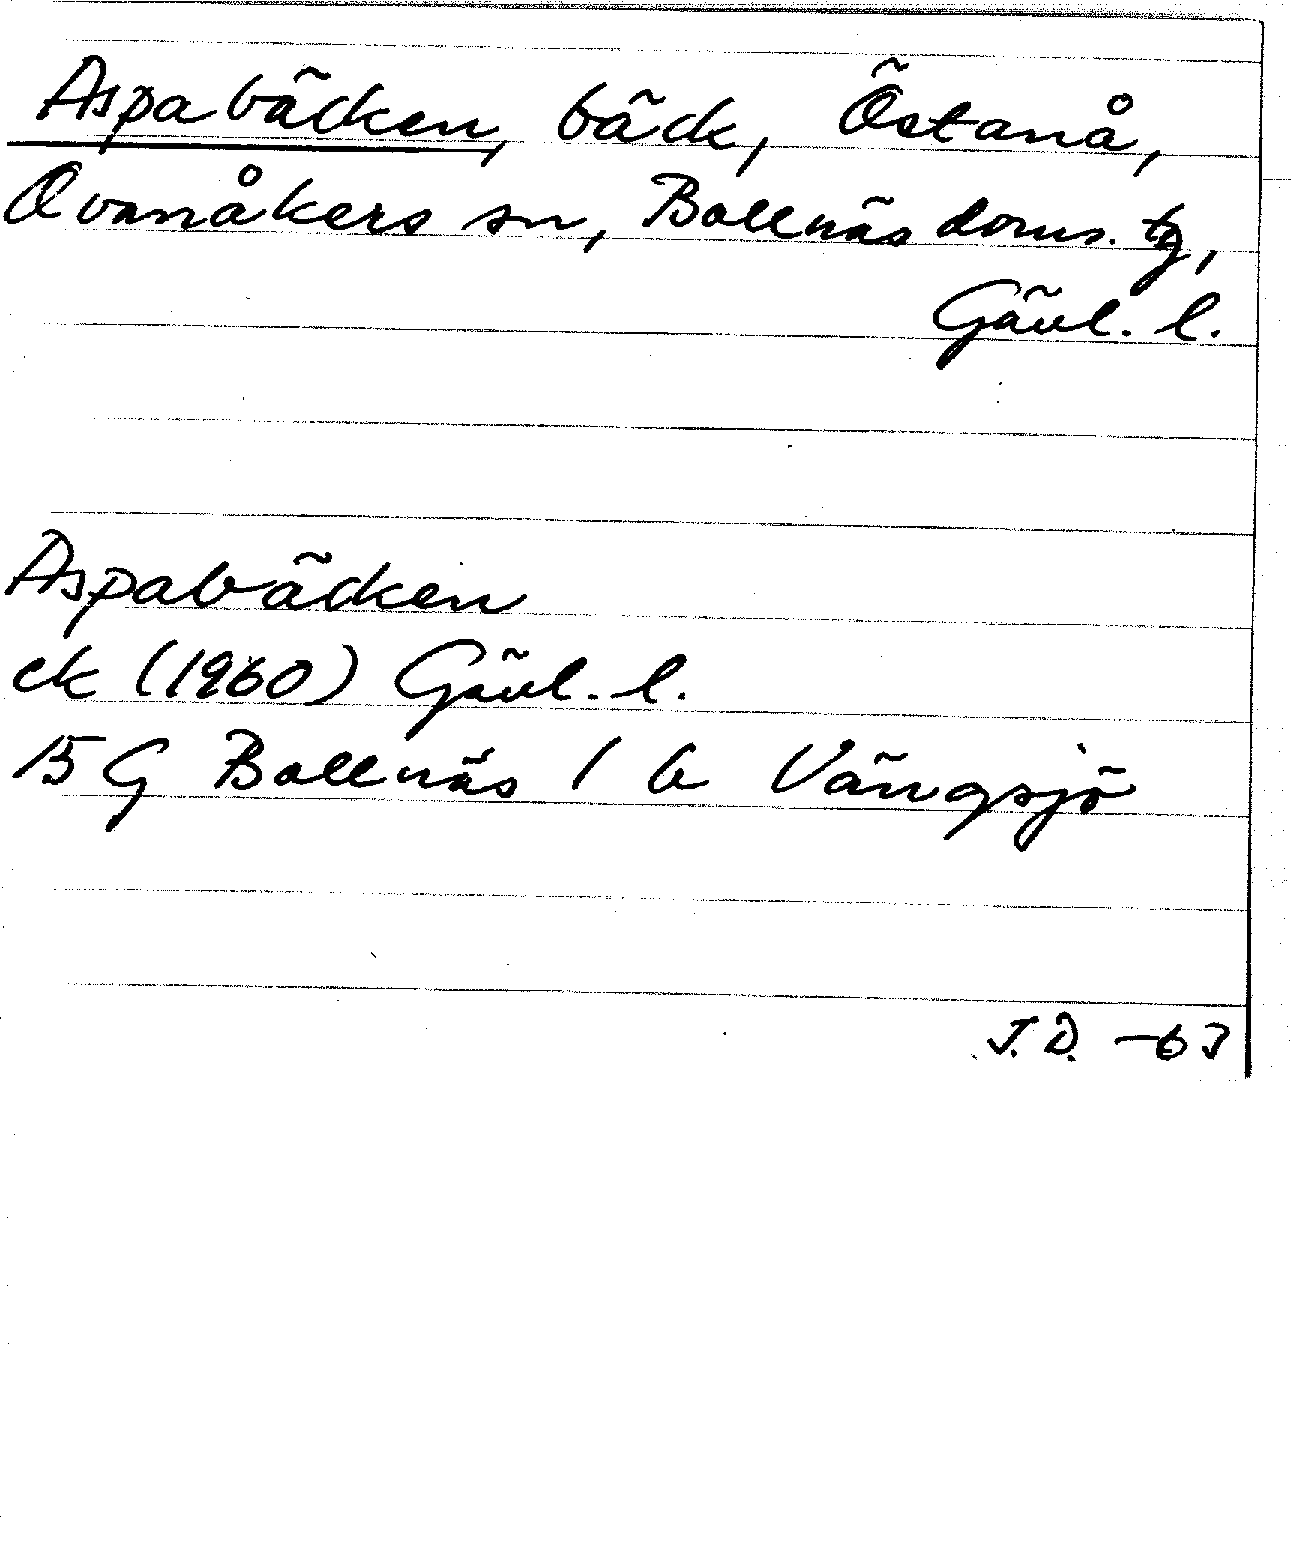 Aspabäcken, bäck, Östanå,
Ovanåkers sn, Bollnäs doms. tg,
Gävl. l.
Aspabäcken
ek (1960) Gävl. l.
15 G Bollnäs 1 b Vängsjö
J.D. -63